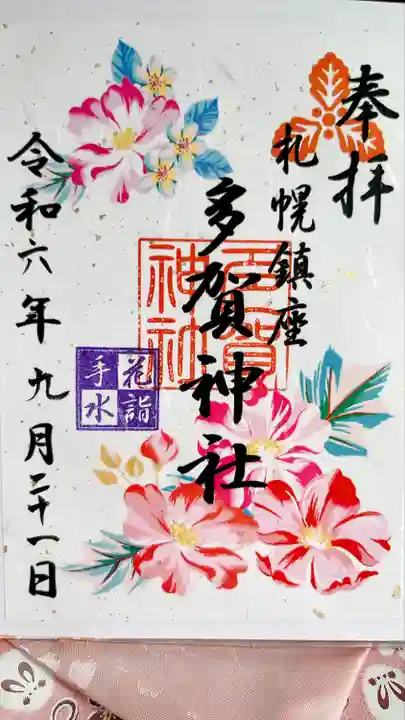 奉拝
札幌鎮座
多賀神社
多賀神社
花詣
手水
令和六年九月二十一日